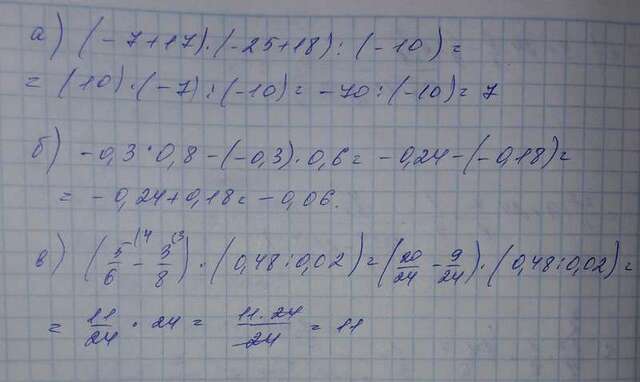 а) (-7+17)·(-25+18):(-10)=
= (10)·(-7):(-10)= -70:(-10)= 7
б) -0,3·0,8-(-0,3)·0,6= -0,24-(-0,18)=
= -0,24+0,18= -0,06.
в) (5/6 (4 - 3/8 (3)·(0,48:0,02)=(20/24 - 9/24)·(0,48:0,02)=
= 11/24 · 24 = 11·24/24 = 11